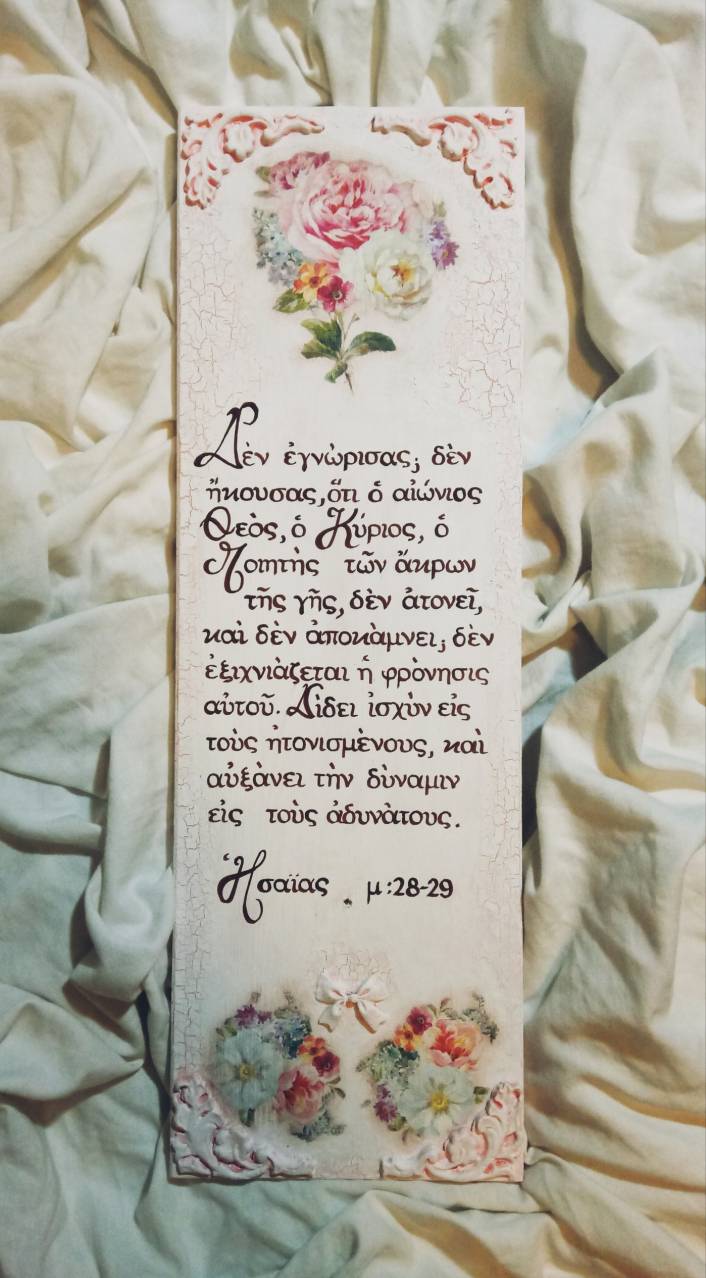 Δὲν ἐγνὼρισας; δὲν
ἤκουσας, ὅτι ὁ αἰώνιος
Θεὸς, ὁ Κύριος, ὁ
Ποιητὴς τῶν ἄκρων
τῆς γῆς, δὲν ἀτονεῖ,
καὶ δὲν ἀποκὰμνει; δὲν
ἐξιχνιὰζεται ἡ φρὸνησις
αὑτοῦ. Δὶδει ἰσχὺν εἰς
τοὺς ἠτονισμὲνους, καὶ
αὐξὰνει τὴν δὺναμιν
εἰς τοὺς ἀδυνὰτους.
Ἡσαϊας . μ:28-29